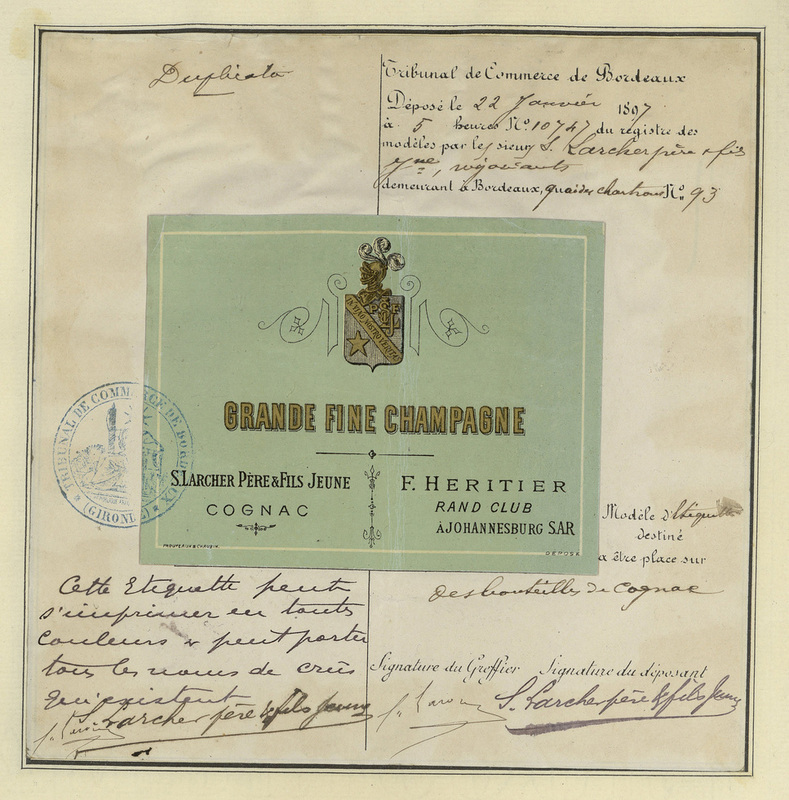 Duplicata
Tribunal de Commerce de Bordeaux
Déposé le 22 Janvier 1897
à 5 heures N° 10747 du registre des
modèles par les sieurs S. Larcher père & fils
Jne, négociants
demeurant à Bordeaux, quai des chartrons N° 93
GRANDE FINE CHAMPAGNE
S. LARCHER PÈRE & FILS JEUNE
COGNAC
F. HERITIER
RAND CLUB
À JOHANNESBURG SAR
DÉPOSÉ
TRIBUNAL DE COMMERCE DE BORDEAUX
(GIRONDE)
Modèle d'étiquette
destiné
a être place sur
des bouteilles de Cognac
Cette Etiquette peut
s'imprimer en toutes
couleurs & peut porter
tous les noms de crûs
qui existent
S. Larcher père & fils Jeune
Signature du Greffier Signature du déposant
S. Larcher père & fils Jeune